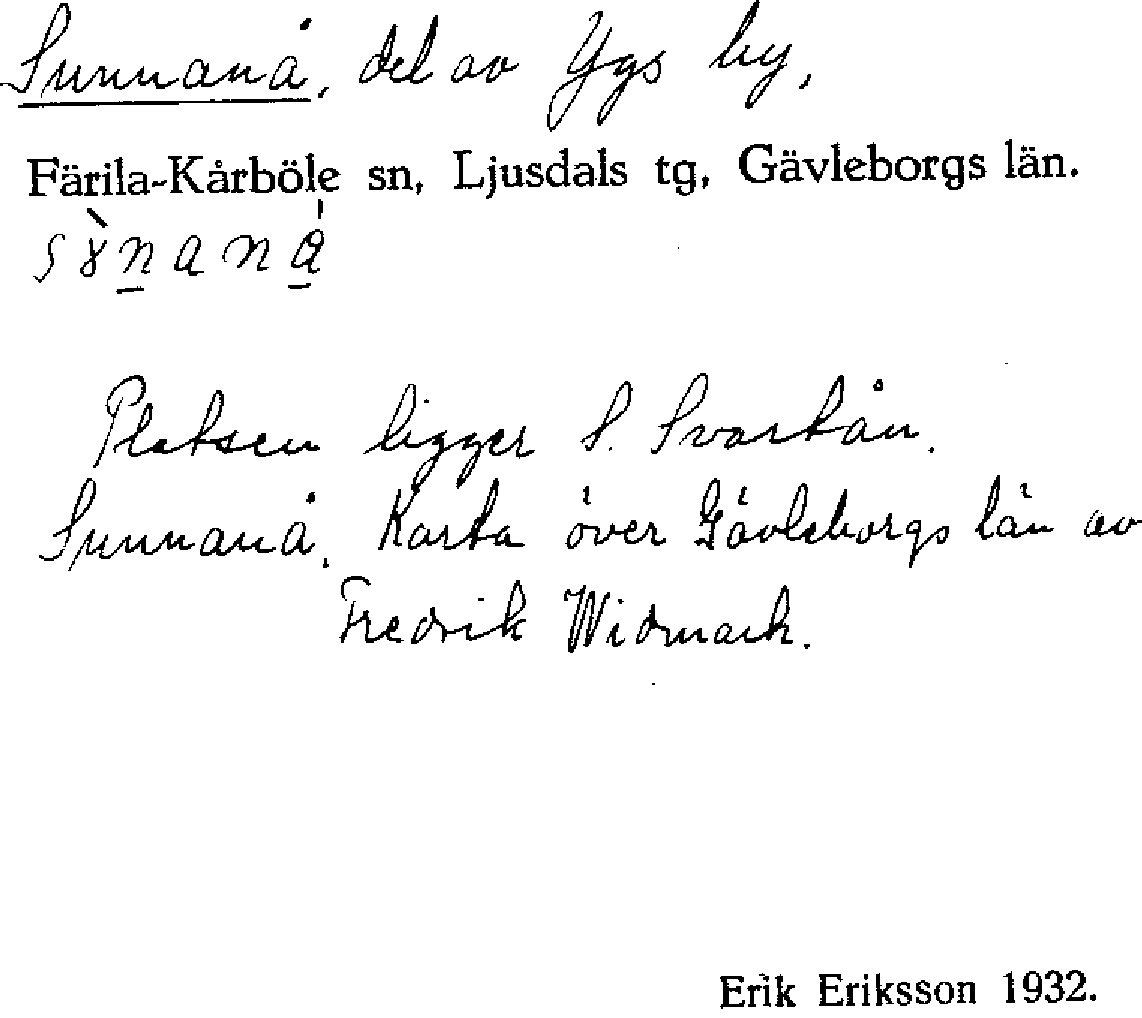 Sunnanå, del av Ygs by,
Färila-Kårböle sn, Ljusdals tg, Gävleborgs län.
Platsen ligger S. Svartån.
Sunnanå. Karta över Gävleborgs län av
Fredrik Widmark.
Erik Eriksson 1932.